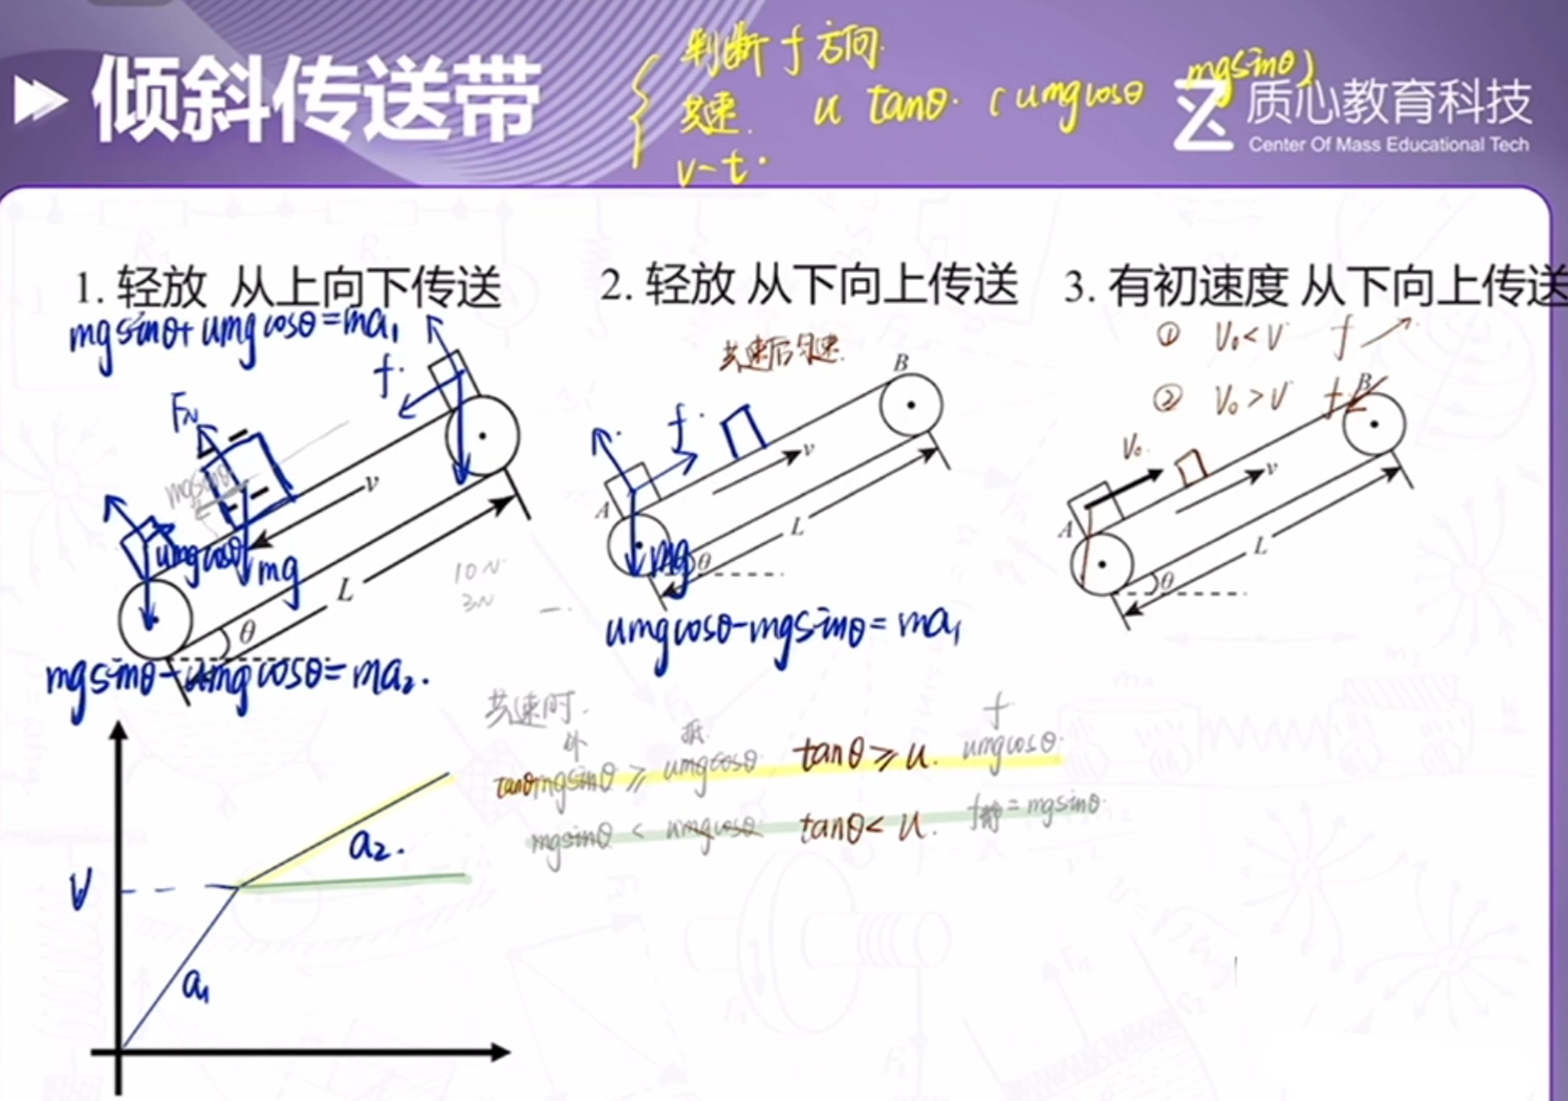 倾斜传送带
判断 f 方向
共速 u tanθ (umgcosθ mgsinθ)
v-t
质心教育科技
Center Of Mass Educational Tech
1. 轻放 从上向下传送
mgsinθ+umgcosθ=ma₁
f
F_N
mgsinθ
v
umgcosθ
mg
L
θ
10N
3N
mgsinθ-umgcosθ=ma₂.
2. 轻放 从下向上传送
共速后匀速
B
f
v
A
mg
θ
L
umgcosθ-mgsinθ=ma₁
3. 有初速度 从下向上传送
① V₀<V f
② V₀>V f
B
V₀
v
A
L
θ
共速时
f
tanθ mgsinθ ≥ umgcosθ tanθ≥u. umgcosθ
mgsinθ < umgcosθ tanθ<u. f静=mgsinθ
V
a₂.
a₁